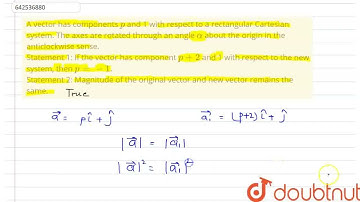 642536880
A vector has components p and 1 with respect to a rectangular Cartesian
system. The axes are rotated through an angle α about the origin in the
anticlockwise sense.
Statement 1: If the vector has component p + 2 and 1 with respect to the new
system, then p = − 1.
Statement 2: Magnitude of the original vector and new vector remains the
same. True
a⃗ = pî + ĵ
a⃗₁ = (p+2)î + ĵ
|a⃗| = |a⃗₁|
|a⃗|² = |a⃗₁|²
doubtnut